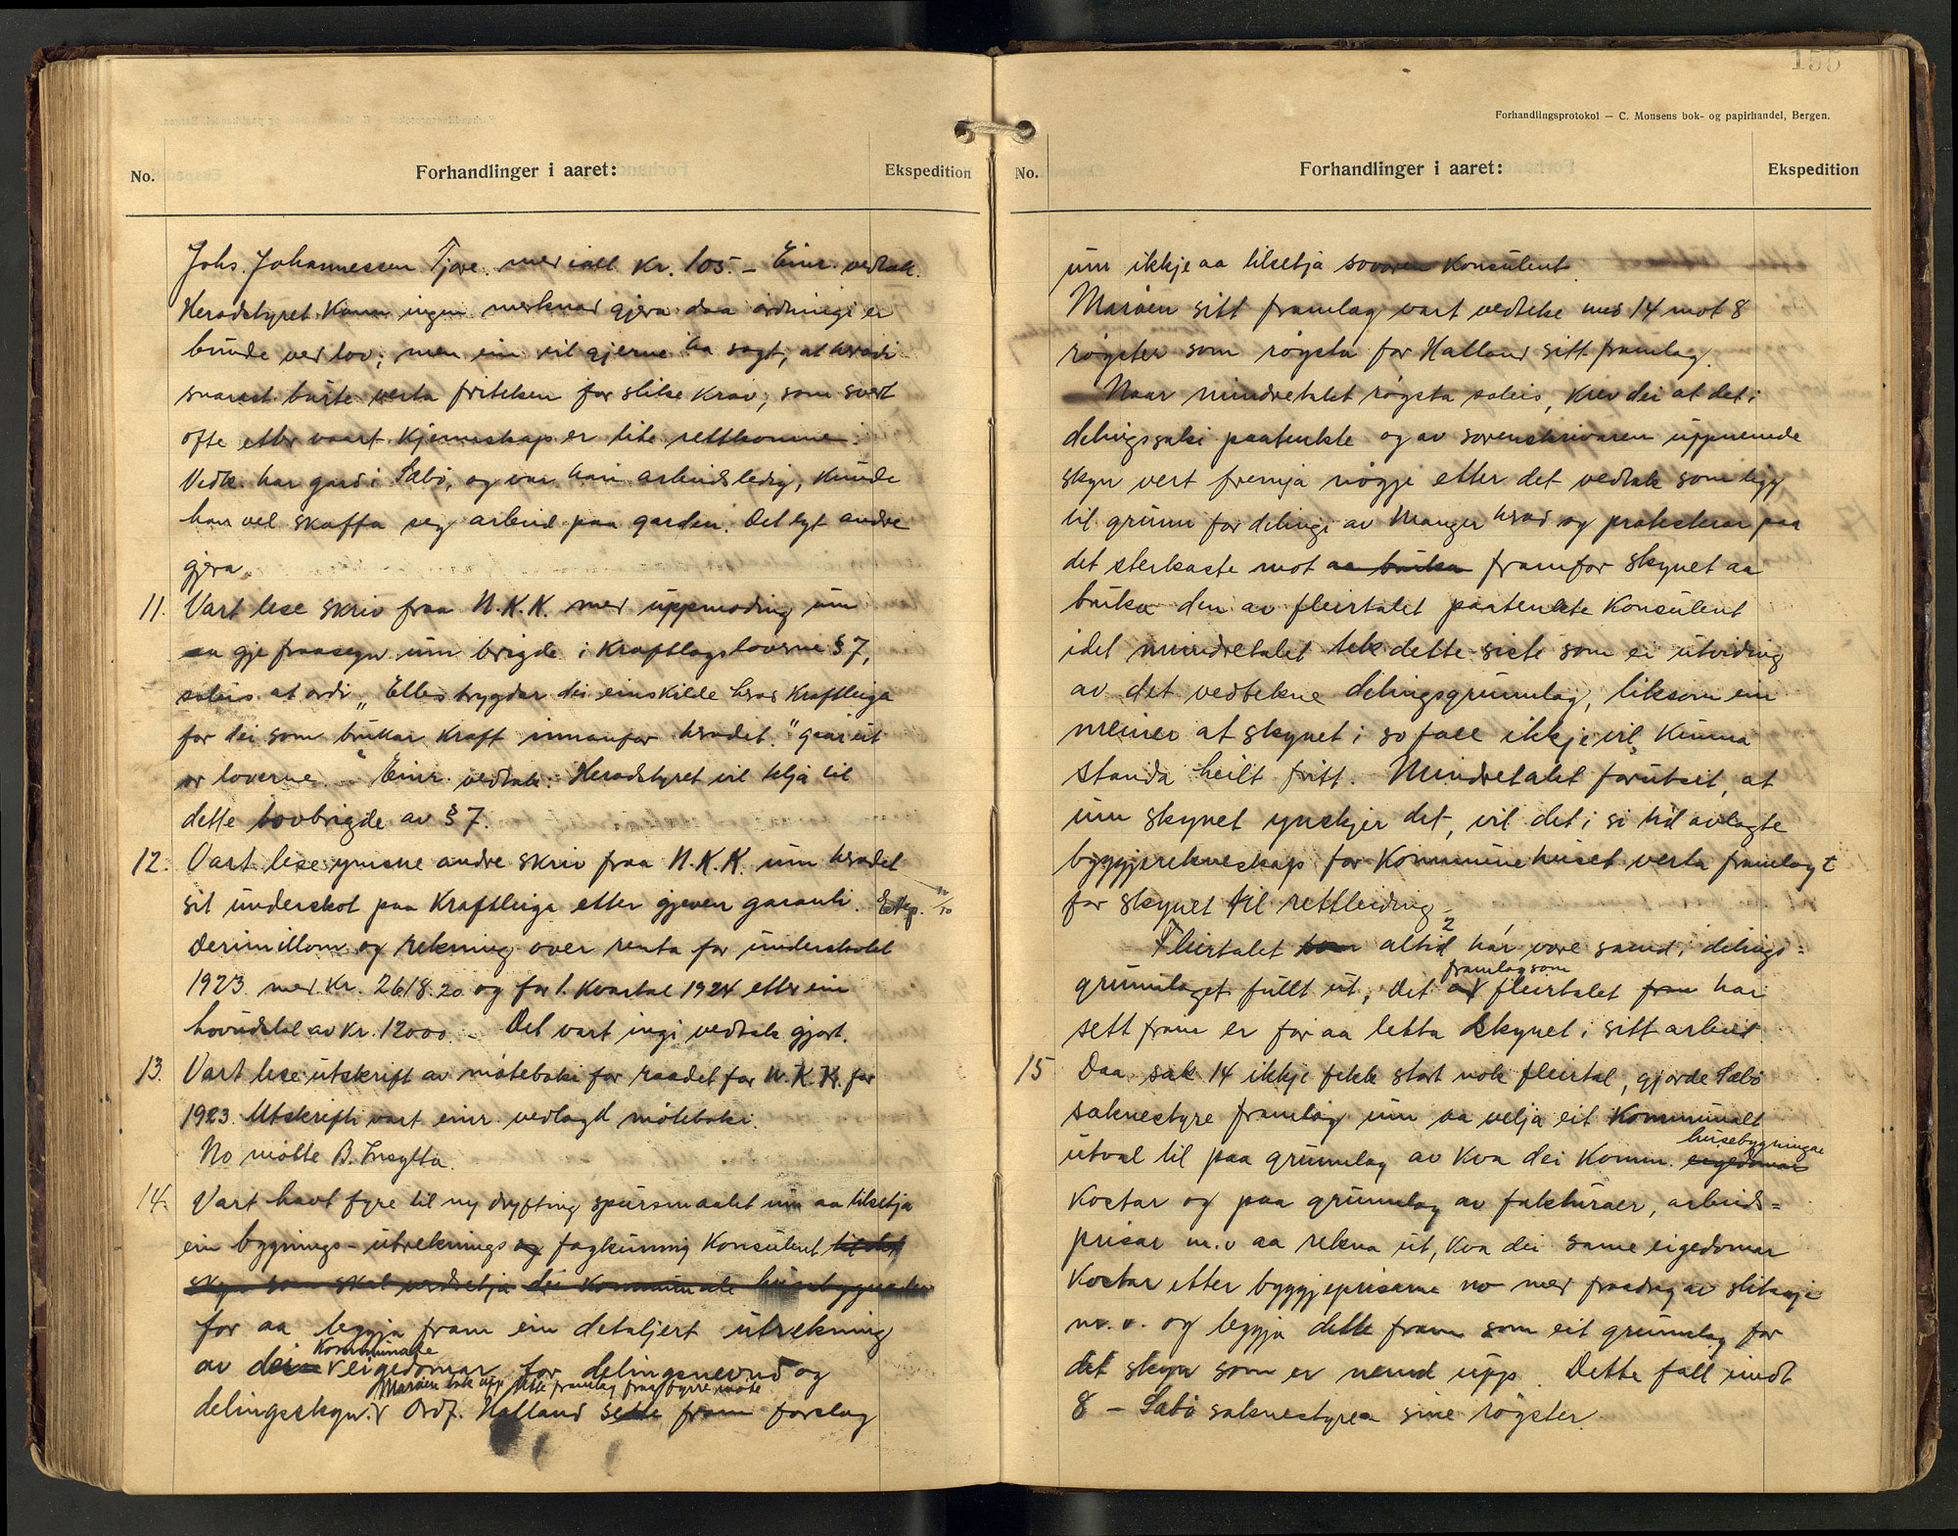 No.
Forhandlinger i aaret:
Ekspedition
Johs. Johannessen Tjore. med iall Kr. 105.- Einr. vedtak.
Heradstyret kann ingen merknad gjera daa ordningi er
bunde ved lov; men ein vil gjerne ha sagt, at hradi
snarast burte verta friteken for slike krav, som svært
ofte etter vaart kjennskap er lite rettkomne.
Vedk. har gard i Sæbö, og var han arbeidsledig, kunde
han vel skaffa seg arbeid paa garden. Det lyt andre
gjera.
11. Vart lese skriv fraa N.K.K. med uppmoding um
aa gje fraasegn um brigde i Kraftlagsloverne § 7,
soleis at ordi „Elles trygdar dei einskilde hrad Kraftleiga
for dei som brukar kraft innanfor hradet." gaar ut
or loverne. Einr. vedtak: Heradstyret vil telja til
dette lovbrigde av § 7.
12. Vart lese ymsne andre skriv fraa N.K.K. um hradet
sit underskot paa Kraftleiga etter gjeven garanti Eksp.
derimillom og rekning over renta for underskotet
1923 med Kr. 2618.20 og for 1. kvartal 1924 etter ein
hovudstol av Kr. 12000.- Det vart ingi vedtak gjort.
13. Vart lese utskrift av möteboki for raadet for N.K.K. for
1923. Utskrifti vart einr. vedlagd möteboki.
No mötte B. Insylta.
14. Vart havt fyre til ny dryfting spursmaalet um aa tilsetja
ein bygnings- utreknings og fagkunnig Konsulent til det
skyn som skal verdsetja dei kommunale husebygnader
for aa leggja fram ein detaljert utrekning
kommunale
av dei eigedomar for delingsnevnd og
Maröen tok upp sitt framlag fraa fyrre möte
delingsskyn. Ordf. Halland sette fram forslag
155
Forhandlingsprotokol — C. Monsens bok- og papirhandel, Bergen.
No.
Forhandlinger i aaret:
Ekspedition
um ikkje aa tilsetja sovoren Konsulent.
Maröen sitt framlag vart vedteke med 14 mot 8
röyster som röysta for Halland sitt framlag.
Naar mindretalet röysta soleis, krev dei at det i
delingssaki paatenkte og av sorenskrivaren uppnemde
skyn vert fremja nögje etter det vedtak som ligg
til grunn for delingi av Manger hrad og protesterar paa
det sterkaste mot aa bruka framfor skynet aa
bruka den av fleirtalet paatenkte Konsulent
idet mindretalet tek dette siste som ei utviding
av det vedtekne delingsgrunnlag, liksom ein
meiner at skynet i so fall ikkje vil kunna
standa heilt fritt. Mindretalet forutset, at
um skynet ynskjer det, vil det i si tid avlagte
byggjerekneskap for Kommunehuset verta framlagt
for skynet til rettleiding.
Fleirtalet som altid har vore samd i delings=
framlag som
grunnlaget fullt ut, det av fleirtalet fram har
sett fram er for aa letta skynet i sitt arbeid.
15 Daa sak 14 ikkje fekk stort nok fleirtal, gjorde Sæbö
soknestyre framlag um aa velja eit Kommunalt
husebygningar
utval til paa grunnlag av kva dei Komm. eigedomar
kostar og paa grunnlag av fakturaer, arbeids=
prisar m.v aa rekna ut, kva dei same eigedomar
kostar etter byggjeprisarne no med fraadrag av slitasje
m.v. og leggja dette fram som eit grunnlag for
det skyn som er nemnd upp. Dette fall imot
8 - Sæbö soknestyres sine röyster.